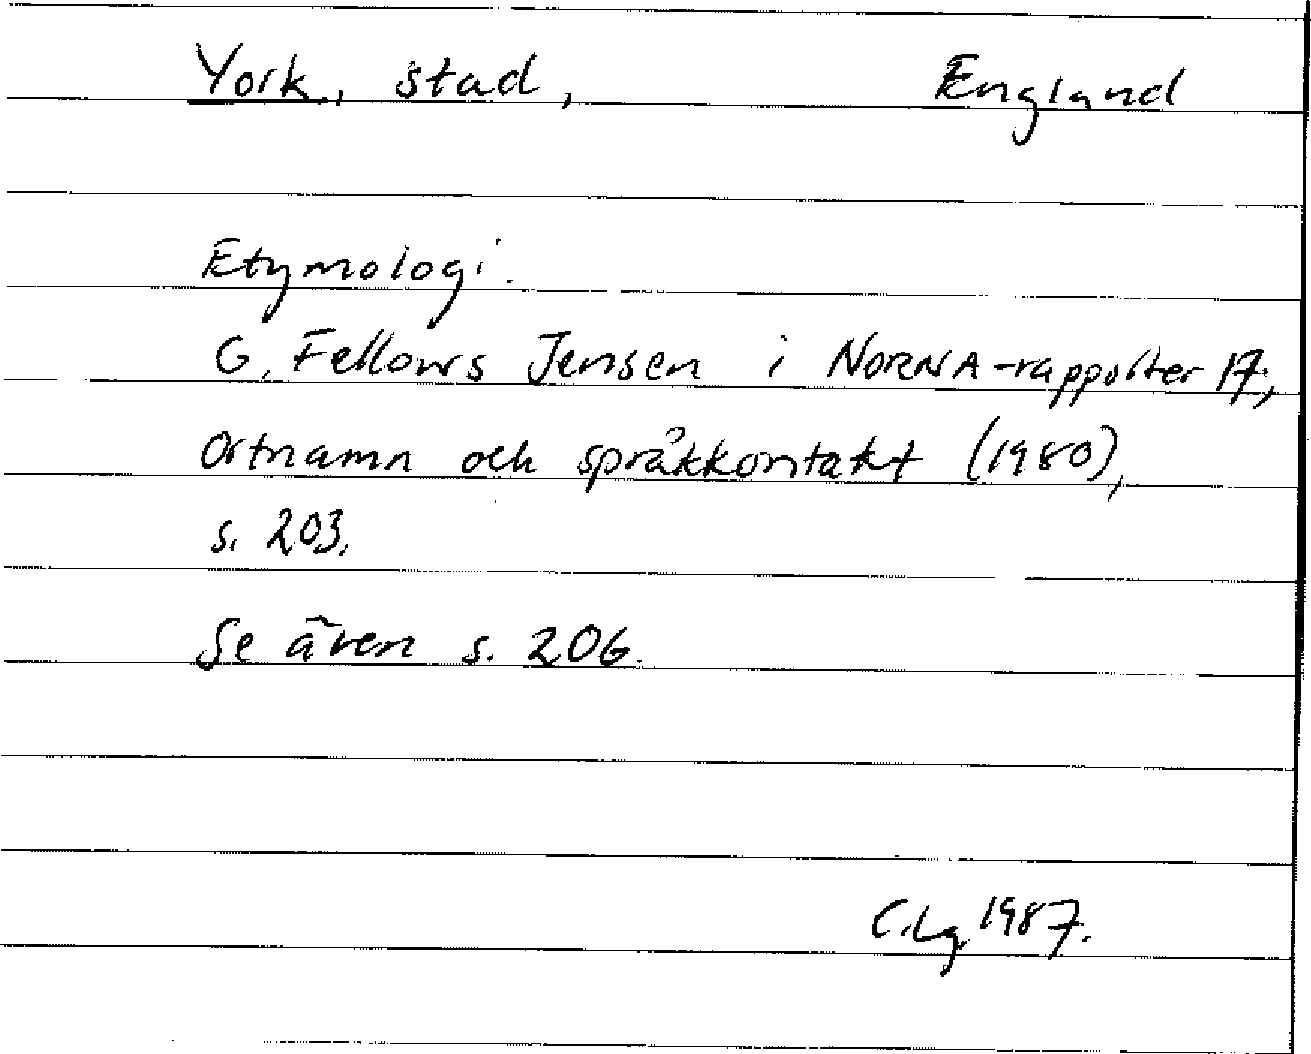 York, stad, England
Etymologi.
G. Fellows Jensen i NORNA-rapporter 17,
Ortnamn och språkkontakt (1980),
s. 203.
Se även s. 206.
C.Lg. 1987.